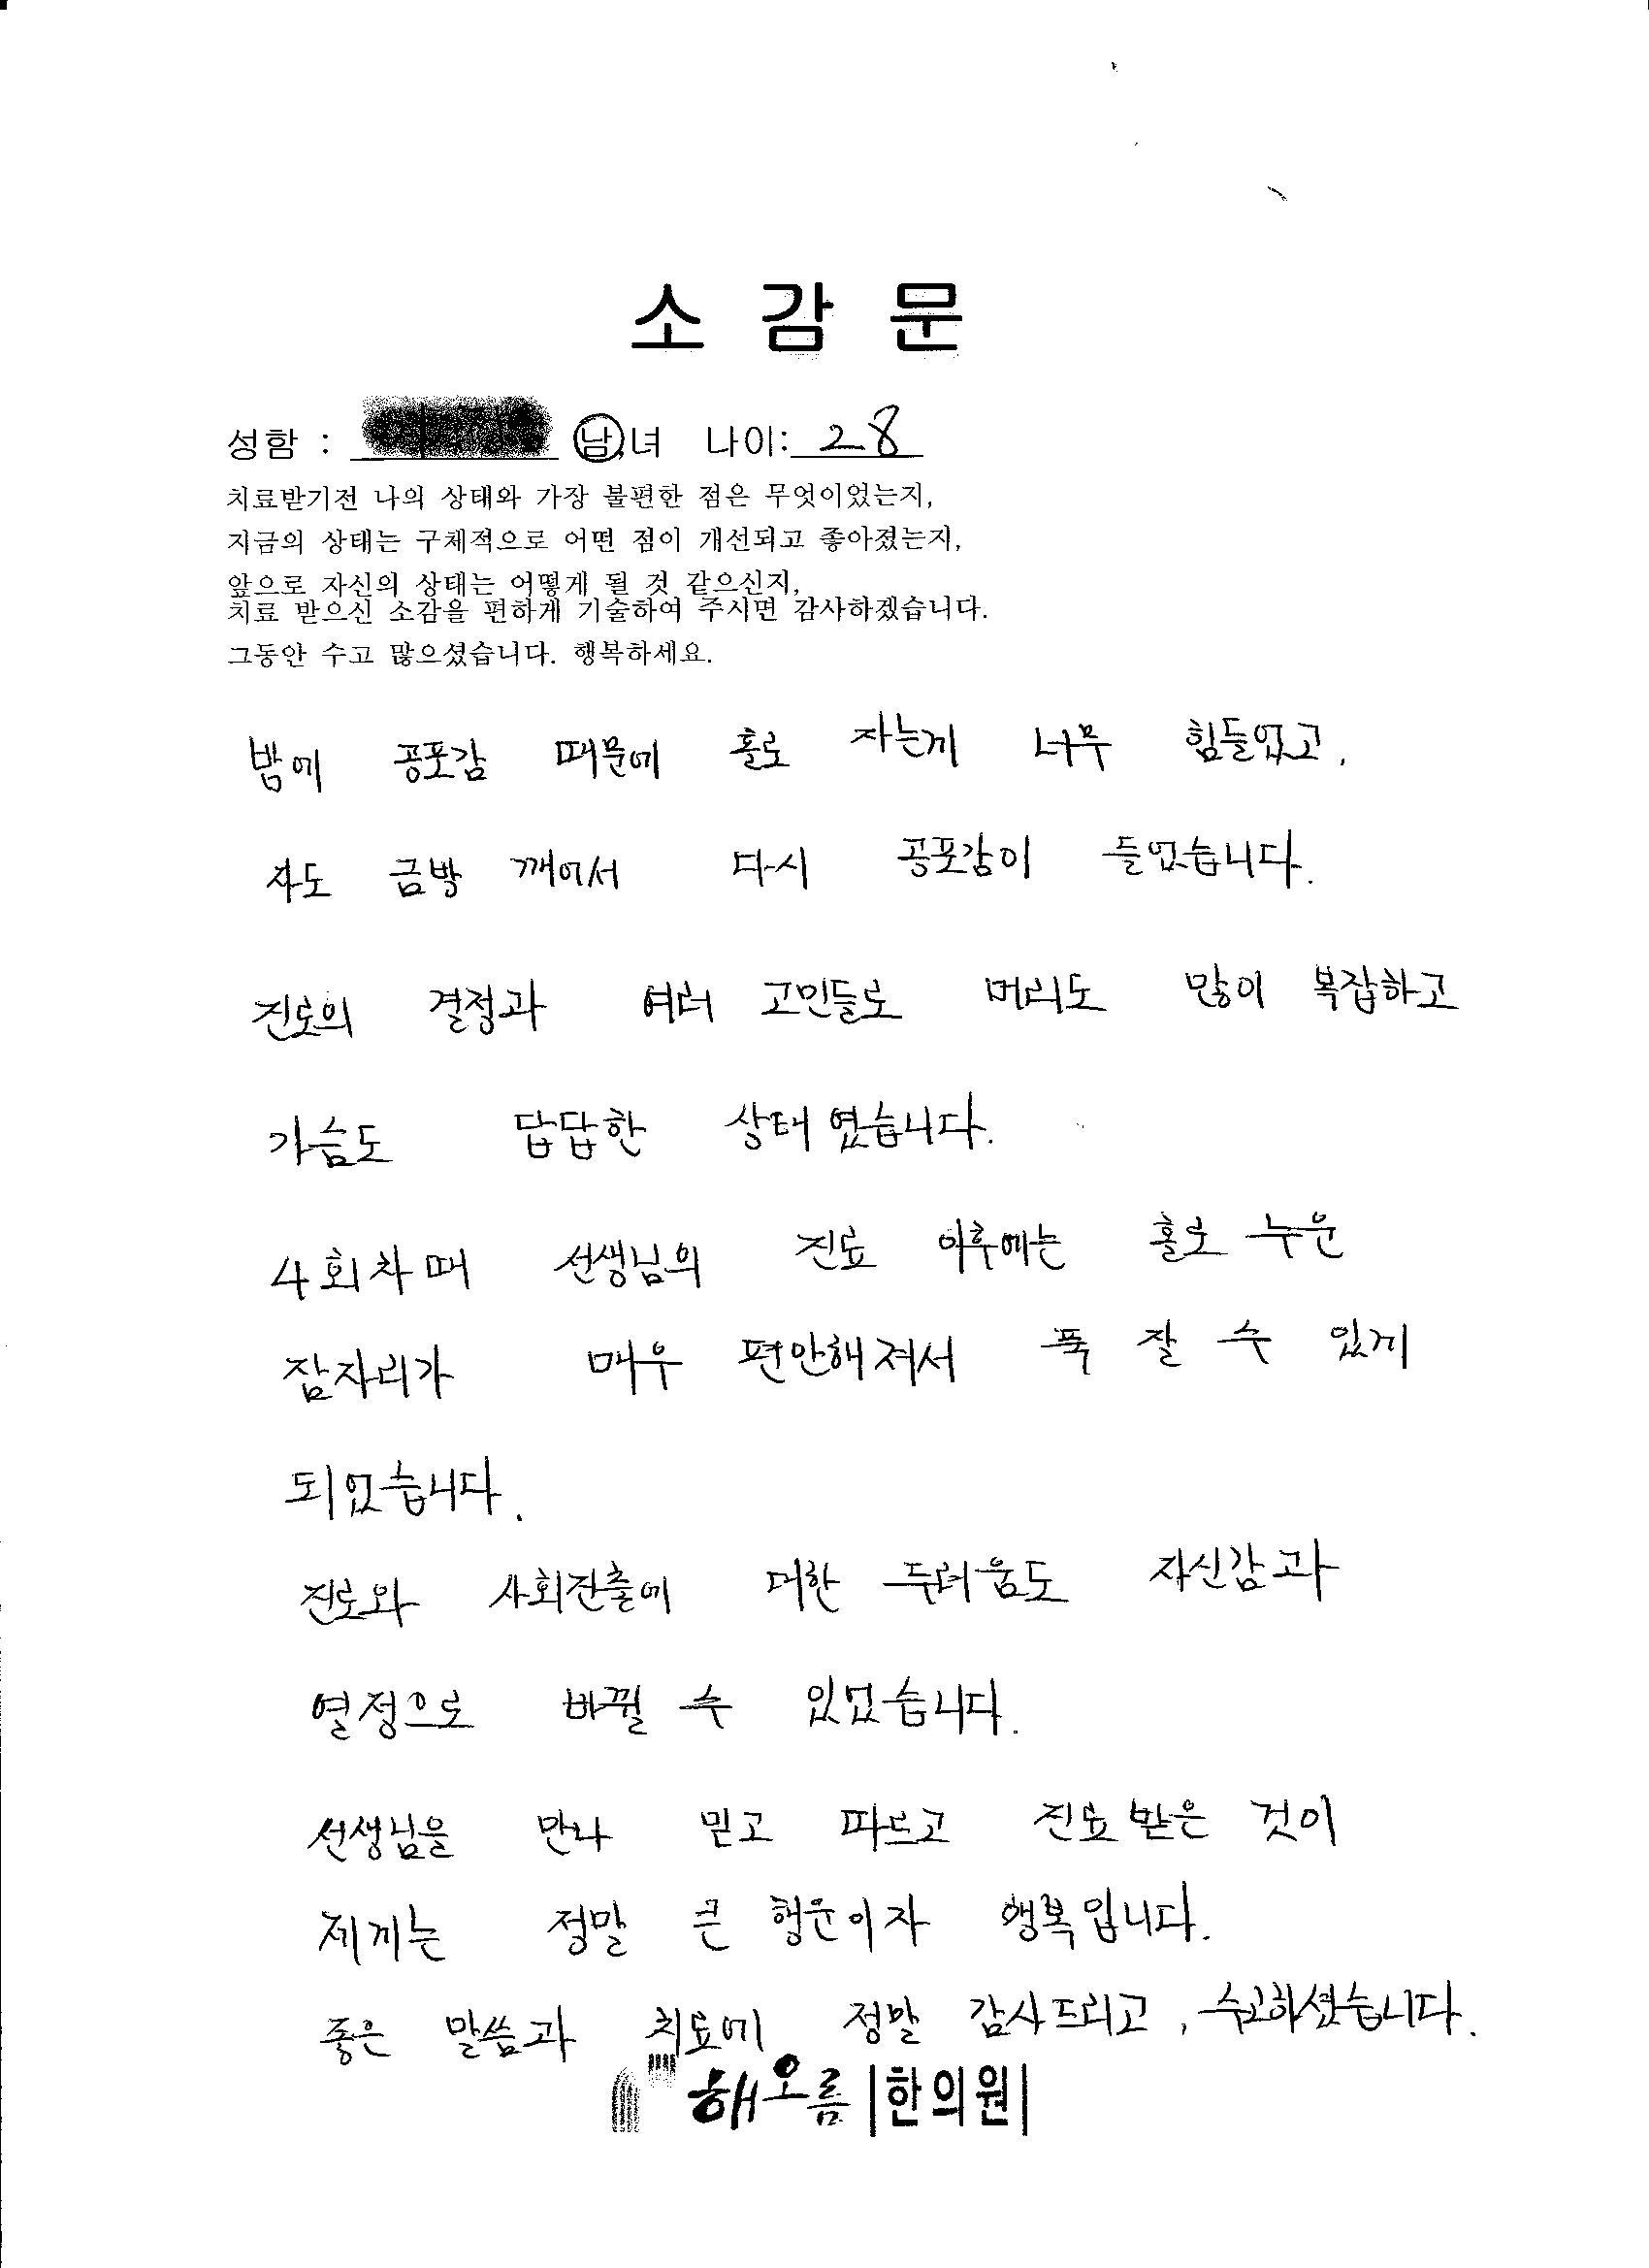 소 감 문
성함 : 남,녀 나이: 28
치료받기전 나의 상태와 가장 불편한 점은 무엇이었는지,
지금의 상태는 구체적으로 어떤 점이 개선되고 좋아졌는지,
앞으로 자신의 상태는 어떻게 될 것 같으신지,
치료 받으신 소감을 편하게 기술하여 주시면 감사하겠습니다.
그동안 수고 많으셨습니다. 행복하세요.
밤에 공포감 때문에 홀로 자는게 너무 힘들었고,
자도 금방 깨어서 다시 공포감이 들었습니다.
진로의 결정과 여러 고민들로 머리도 많이 복잡하고
가슴도 답답한 상태였습니다.
4회차때 선생님의 진료 이후에는 홀로 누운
잠자리가 매우 편안해져서 푹 잘 수 있게
되었습니다.
진로와 사회진출에 대한 두려움도 자신감과
열정으로 바뀔 수 있었습니다.
선생님을 만나 믿고 따르고 진료받은 것이
제게는 정말 큰 행운이자 행복입니다.
좋은 말씀과 치료에 정말 감사드리고, 수고하셨습니다.
해오름|한의원|